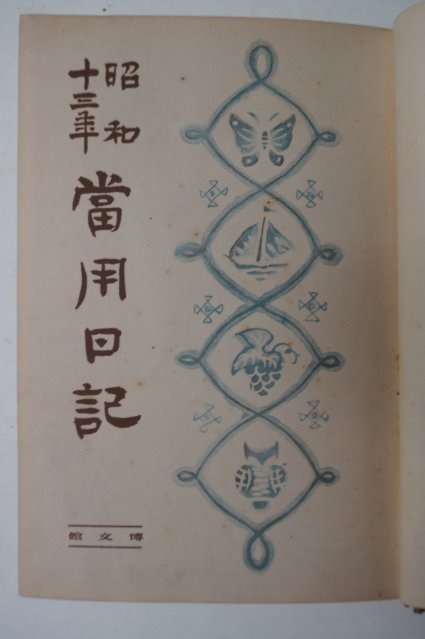 昭和
十三年
當用日記
博文館